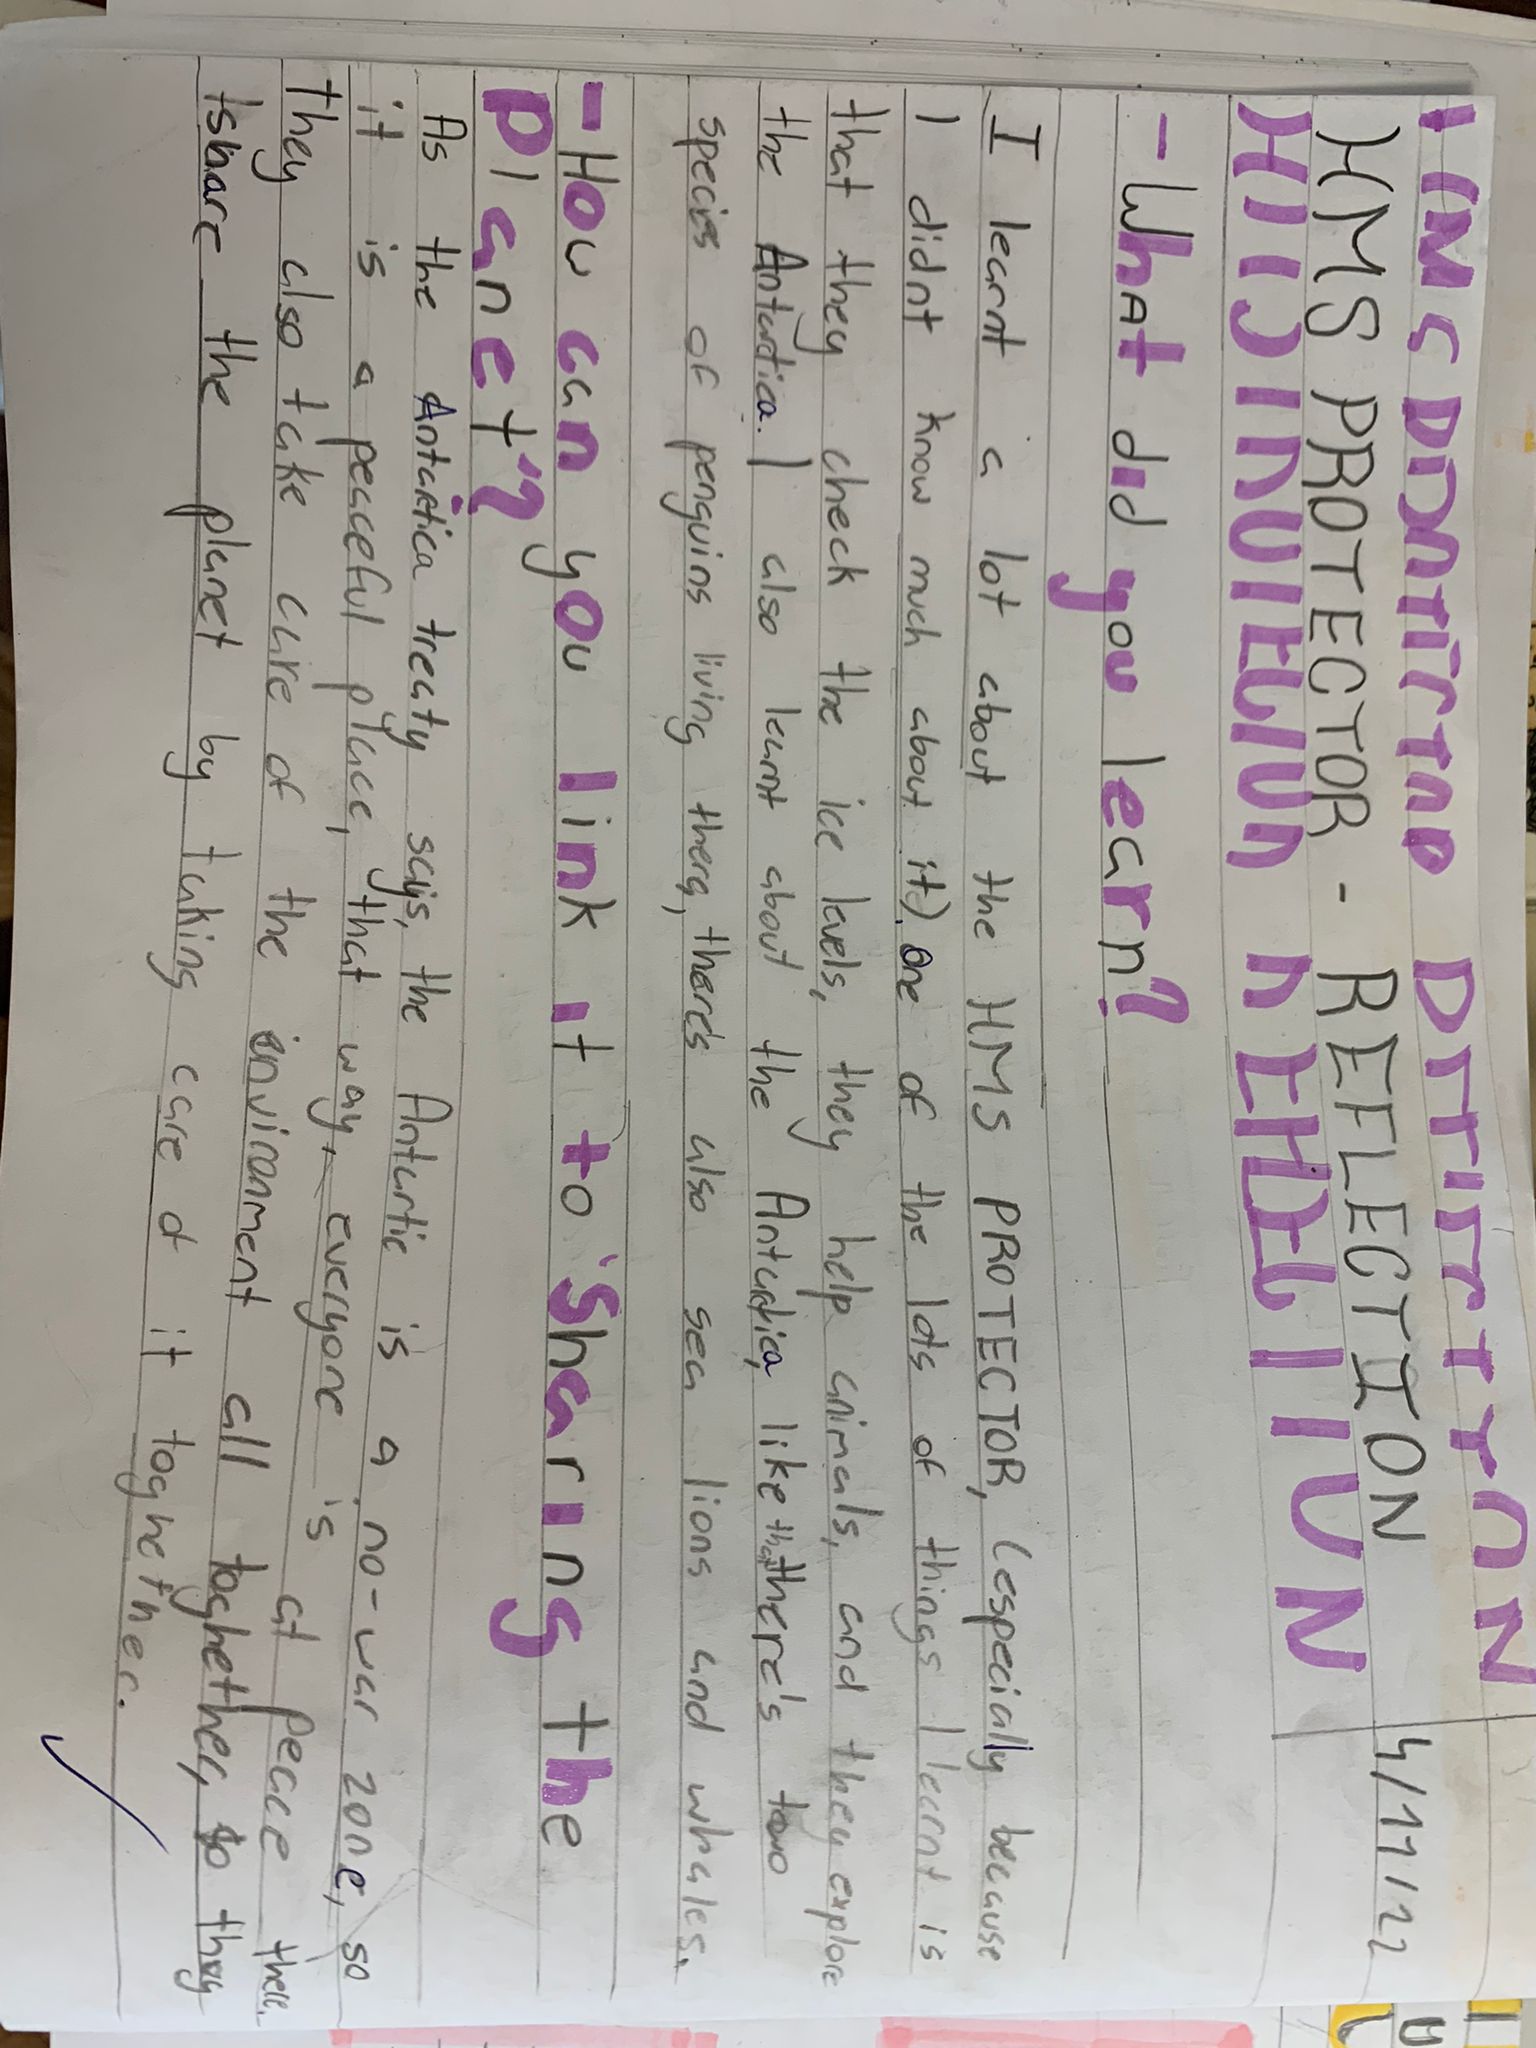 HMS PROTECTOR - REFLECTION 4/11/22
- What did you learn?
I learnt a lot about the HMS PROTECTOR, (especially because
I didnt know much about it) One of the lots of things I learnt is
that they check the ice levels, they help animals, and they explore
the Antartica. I also learnt about the Antartica, like that there's two
species of penguins living there, theres also sea lions and whales.
- How can you link it to 'Sharing the
Planet'?
As the Antartica treaty says, the Antartic is a no-war zone, so
it is a peaceful place, that way, everyone is at peace there.
They also take care of the environment all toghether, so they
share the planet by taking care of it toghether.